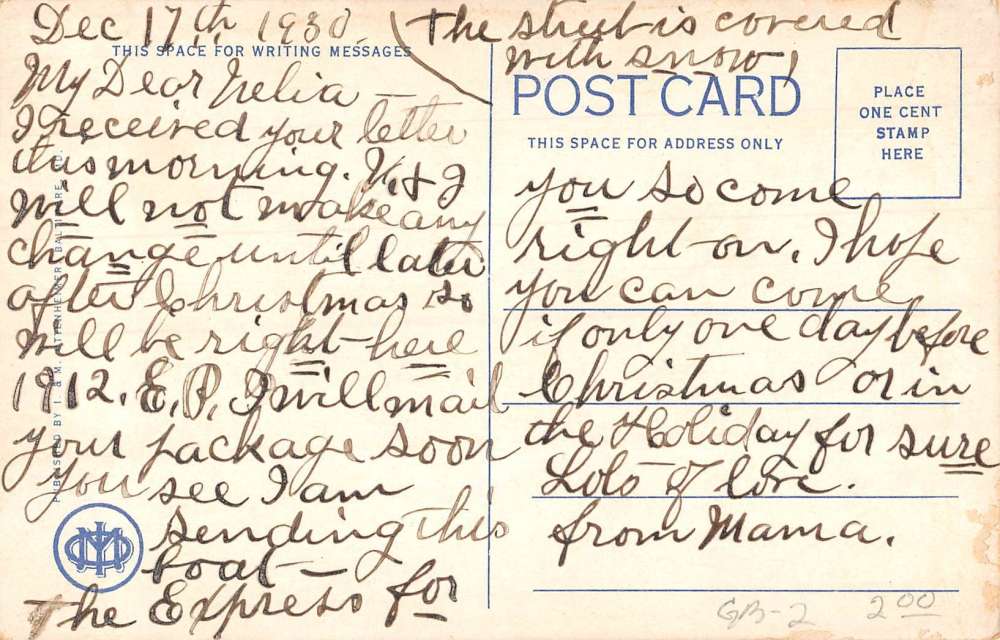 Dec 17th 1930.
THIS SPACE FOR WRITING MESSAGES
My Dear Nelia —
I received your letter
this morning. K. & J
will not make any
change until later
after Christmas so
will be right here
1912. E. P. I will mail
your package soon
you see I am
sending this
boat —
The Express for
PUBLISHED BY I. & M. OTTENHEIMER, BALTIMORE, MD.
The street is covered
with snow,
POST CARD
THIS SPACE FOR ADDRESS ONLY
PLACE
ONE CENT
STAMP
HERE
you so come
right on. I hope
you can come
if only one day before
Christmas or in
the Holiday for sure
Lots of love.
from Mama.
GB-2 2 00